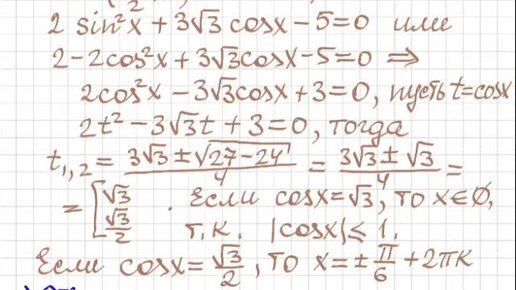 2 sin²x + 3√3 cosx − 5 = 0 или
2 − 2cos²x + 3√3 cosx − 5 = 0 ⇒
2cos²x − 3√3 cosx + 3 = 0, пусть t = cosx
2t² − 3√3 t + 3 = 0, тогда
t₁,₂ = (3√3 ± √(27 − 24))/4 = (3√3 ± √3)/4 =
= [√3; √3/2 . Если cosx = √3, то x ∈ ∅,
т.к. |cosx| ≤ 1.
Если cosx = √3/2, то x = ± π/6 + 2πк